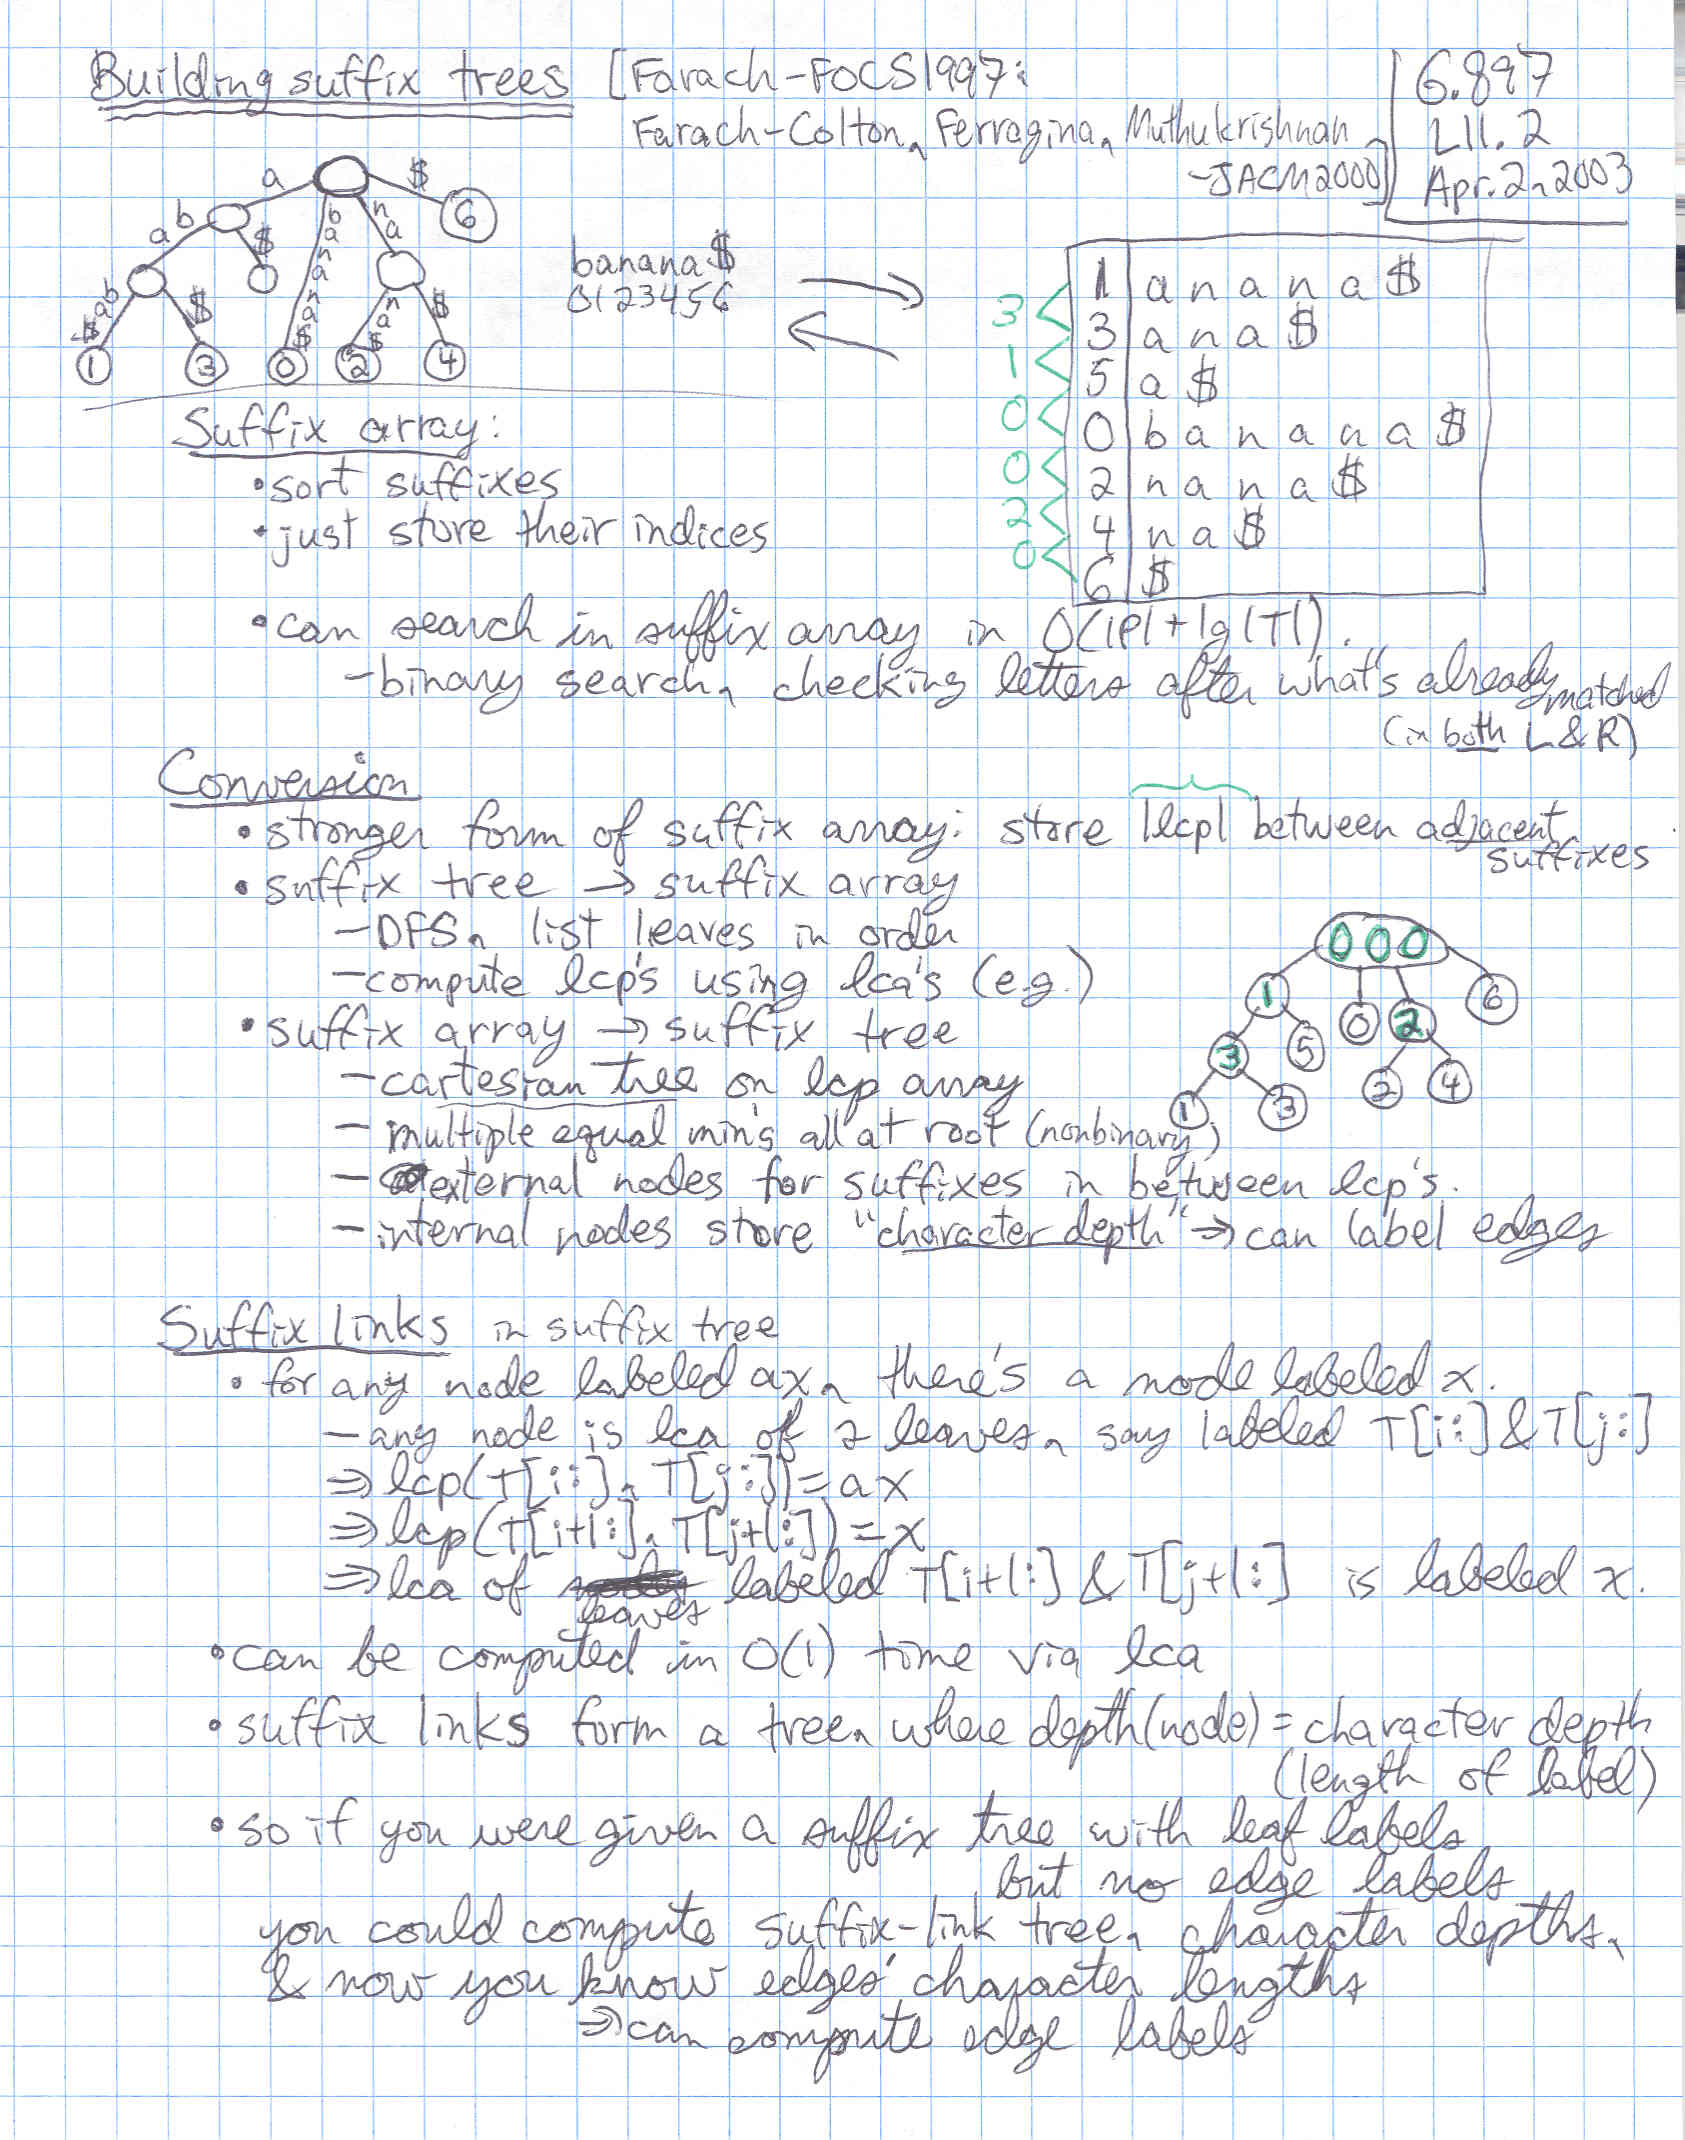 Building suffix trees [Farach-FOCS1997;
Farach-Colton, Ferragina, Muthukrishnan
-JACM2000]
6.897
L11.2
Apr. 2, 2003
a $
b a $ b a n a n a $ n a 6
a b $ $ n a $ $
1 3 0 2 4
banana$
0123456
3 1 0 0 2 0
1 anana$
3 ana$
5 a$
0 banana$
2 nana$
4 na$
6 $
Suffix array:
• sort suffixes
• just store their indices
• can search in suffix array in O(|P|+lg|T|).
- binary search, checking letters after what's already matched
(in both L & R)
Conversion
• stronger form of suffix array: store |lcp| between adjacent
suffixes
• suffix tree → suffix array
- DFS, list leaves in order
- compute lcp's using lca's (e.g.)
• suffix array → suffix tree
- cartesian tree on lcp array
- multiple equal min's all at root (nonbinary)
- external nodes for suffixes in between lcp's.
- internal nodes store "character depth" ⇒ can label edges
0 0 0
1 0 2 6
3 5 2 4
1 3
Suffix links in suffix tree
• for any node labeled ax, there's a node labeled x.
- any node is lca of 2 leaves, say labeled T[i:] & T[j:]
⇒ lcp(T[i:], T[j:]) = ax
⇒ lcp(T[i+1:], T[j+1:]) = x
⇒ lca of leaves labeled T[i+1:] & T[j+1:] is labeled x.
• can be computed in O(1) time via lca
• suffix links form a tree, where depth(node) = character depth
(length of label)
• so if you were given a suffix tree with leaf labels
but no edge labels
you could compute suffix-link tree, character depths,
& now you know edges' character lengths
⇒ can compute edge labels